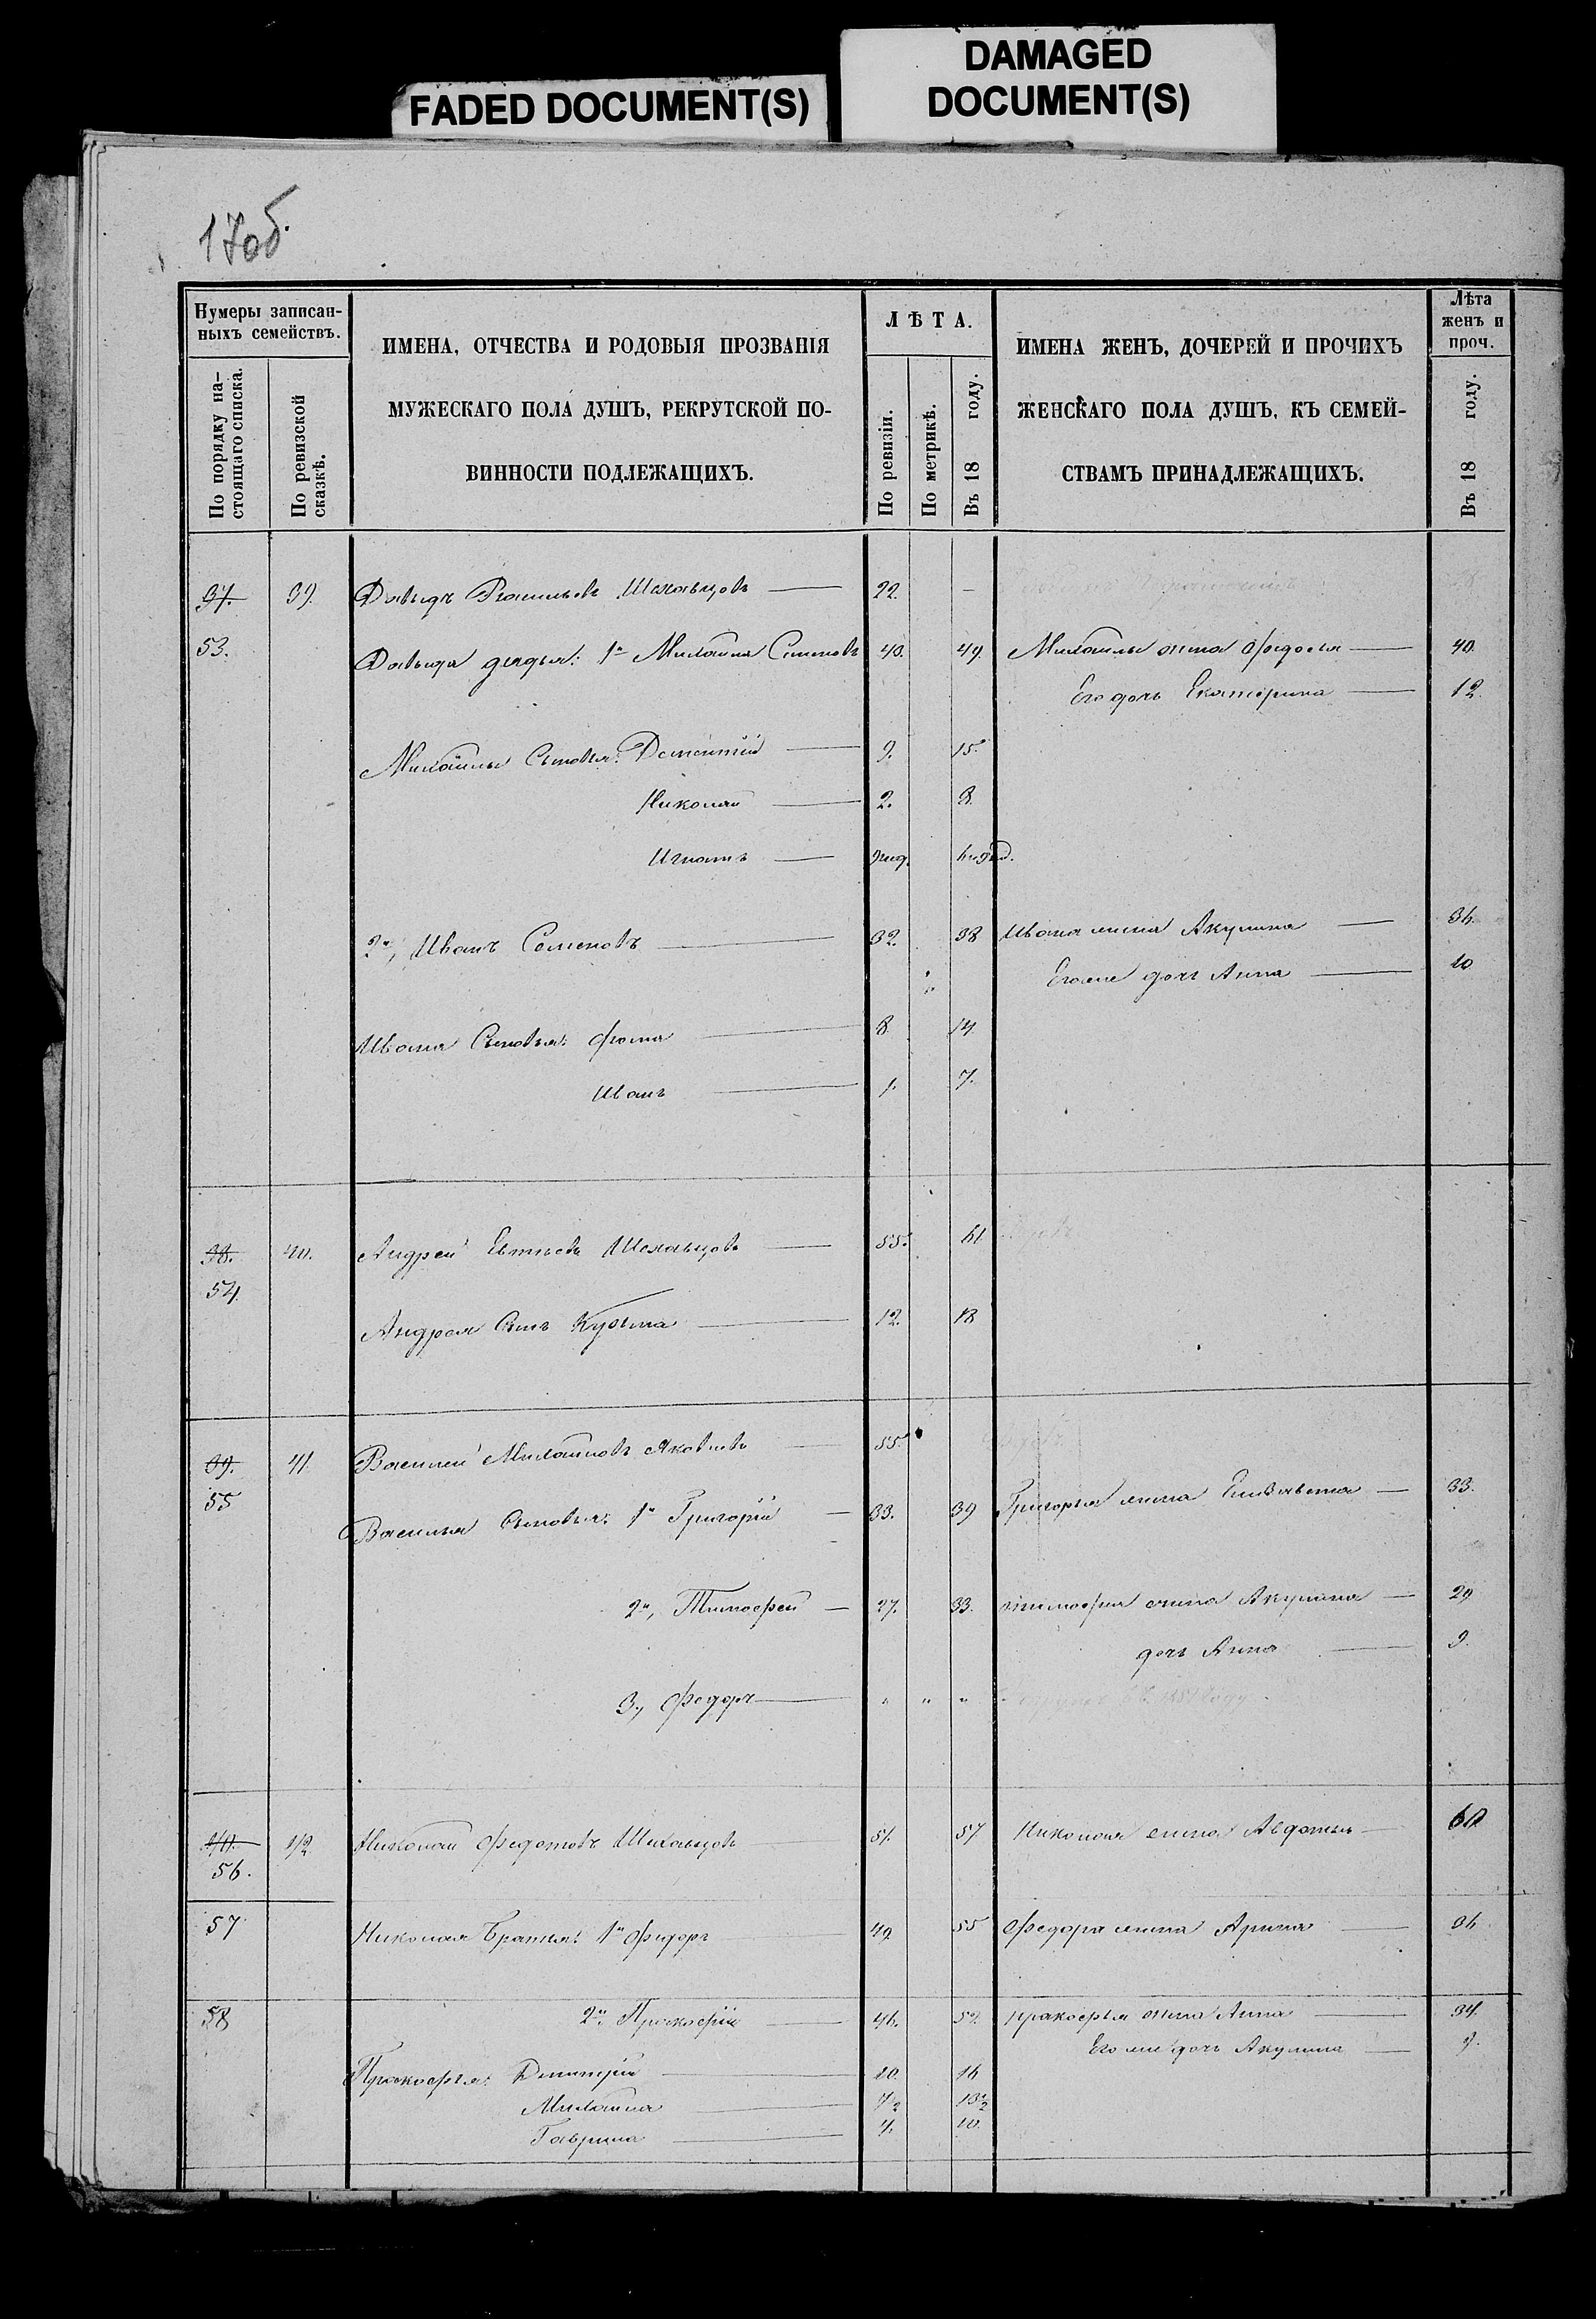 FADED DOCUMENT(S)
DAMAGED
DOCUMENT(S)
17об.
Нумеры записан-
ныхъ семействъ.
По порядку на-
стоящаго списка.
По ревизской
сказкѣ.
ИМЕНА, ОТЧЕСТВА И РОДОВЫЯ ПРОЗВАНІЯ
МУЖЕСКАГО ПОЛА ДУШЪ, РЕКРУТСКОЙ ПО-
ВИННОСТИ ПОДЛЕЖАЩИХЪ.
ЛѢТА.
По ревизіи.
По метрикѣ.
Въ 18 году.
ИМЕНА ЖЕНЪ, ДОЧЕРЕЙ И ПРОЧИХЪ
ЖЕНСКАГО ПОЛА ДУШЪ, КЪ СЕМЕЙ-
СТВАМЪ ПРИНАДЛЕЖАЩИХЪ.
Лѣта
женъ и
проч.
Въ 18 году.
37. 39. Давыдъ Васильевъ 22. —
53. Давыда дядья: 1й Михайла Семеновъ 40. 49. Михайлы жена Федосья 40.
Его дочь Екатерина 12.
Михайлы Сыновья: Дементій 9. 15.
Николай 2. 8.
Игнатъ
2й, Иванъ Семеновъ 32. 38 Ивана жена Акулина 36.
Его же дочь Анна 10
Ивана Сыновья: Фома 8. 14.
Иванъ 1. 7.
38. 40. Андрей 55. 61
54.
Андрея Сынъ Кузьма 12. 18
39. 41. Василий Михайловъ Яковлевъ 55.
55 Василья Сыновья: 1й Григорій 33. 39 Григорья жена Елизавета 33.
2й, Тимофей 27. 33. Тимофея жена Акулина 29
дочь Анна 9.
3., Федоръ " " " 1851 году
40. 42 Николай Федотовъ 51. 57 Николая жена Авдотья 60.
56.
57 Николая Братья: 1й Федоръ 49 55 Федора жена Арина 36
58 2й Прокофій 46. 52. Прокофья жена Анна 34.
Его же дочь Акулина 9.
Прокофья: Дмитрій 10. 16
Михайла 7½ 13½
Гаврила 4. 10.